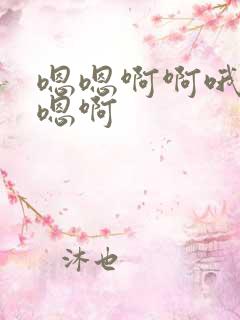 嗯嗯啊啊哦
嗯啊
沐也